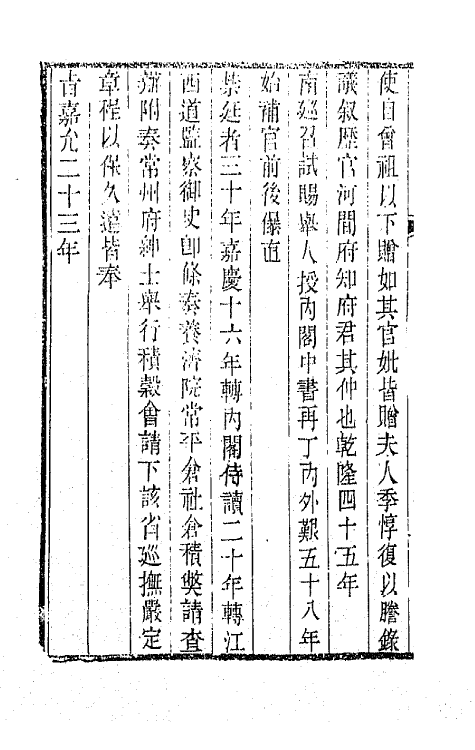 使自曾祖以下贈如其官妣皆贈夫人季惇復以謄錄
議叙歷官河間府知府君其仲也乾隆四十五年
南廵召試賜舉人授內閣中書再丁內外艱五十八年
始補官前後儤直
禁廷者三十年嘉慶十六年轉內閣侍讀二十年轉江
西道監察御史卽條奏養濟院常平倉社倉積獘請查
辦附奏常州府紳士舉行積穀會請下該省廵撫嚴定
章程以保久遠皆奉
㫖嘉允二十三年